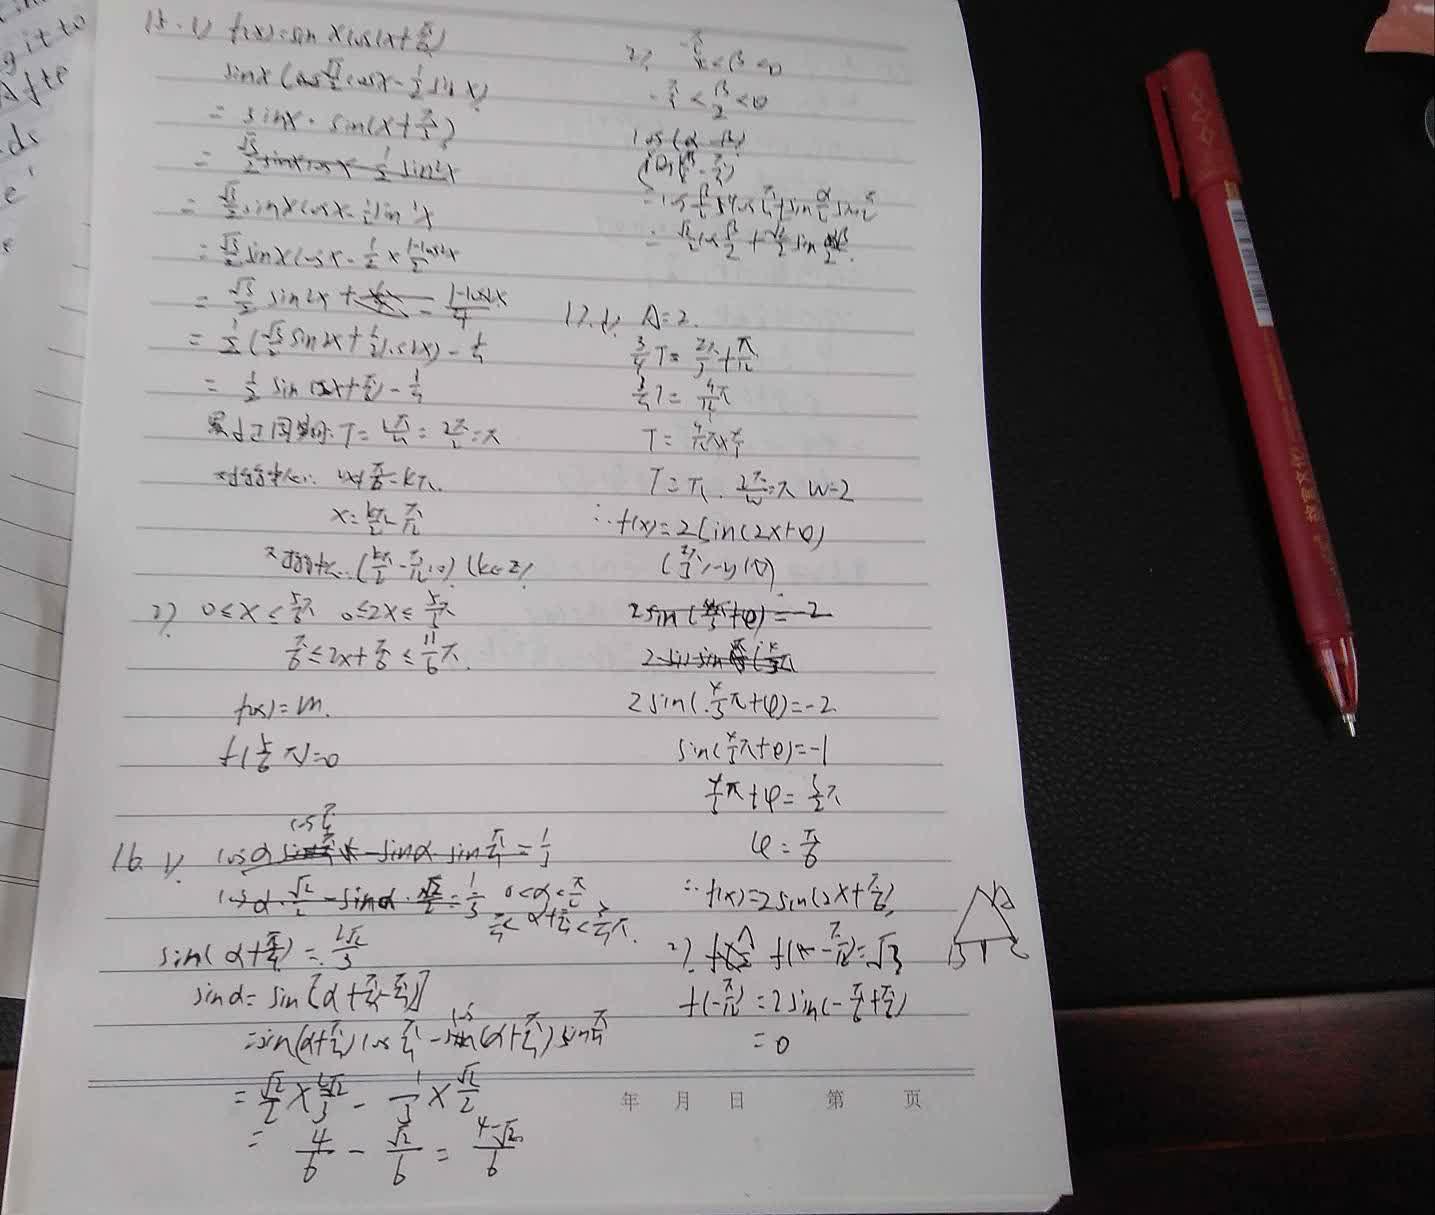 git to
Afte
ds
15. 1) f(x)=sin x cos(x+π/6)
sinx (cos √3/2 cosx - 1/2 sin x)
= sinx · sin(x+π/3)
= √3/2 sinxcosx - 1/2 sin²x
= √3/2 sinxcosx - 1/2 sin²x
= √3/2 sinxcosx - 1/2 × (1-cos2x)/2
= √3/2 sin2x + - (1-cos2x)/4
= 1/2 (√3/2 sin2x + 1/2 cos2x) - 1/4
= 1/2 sin(2x+π/6) - 1/4
最小正周期: T= = 2π/2 = π
对称中心: 2x+π/6=kπ
x=kπ/2 π/12
对称中心: (kπ/2 - π/12, 0) (k∈Z)
2) 0≤x≤5/6π 0≤2x≤5/3π
π/6≤2x+π/6≤11/6π
f(x)=m.
f(5/6π)=0
16. 1) cosα cosπ/4 - sinα · sin π/4 = 1/3
cosα · √2/2 - sinα · √2/2 = 1/3 0<α<π/2
π/4<α+π/4<3/4π
sin(α+π/4) = 2√2/3
sinα = sin[α+π/4-π/4]
=sin(α+π/4) cos π/4 - cos(α+π/4) sinπ/4
= √2/2 × 2√2/3 - 1/3 × √2/2
= 4/6 - √2/6 = (4-√2)/6
2) -π/2<β<0
-π/4<β/2<0
= √2/2 cos β/2 + √2/2 sin β/2.
17. 1) A=2.
3/4 T = 2π/3 + π/12
3/4 T = 9/12 π
T = 9/12 π × 4/3
T=π. 2π/w=π w=2
∴ f(x)=2sin(2x+φ)
2sin(4π/3+φ)=-2
2sin(4/3π+φ)=-2
sin(4/3π+φ)=-1
4/3π+φ=3/2π
φ=π/6
∴ f(x)=2sin(2x+π/6)
2) f(A-π/12)=√3
f(-π/12)=2sin(-π/6+π/6)
=0
A
B C
年 月 日 第 页